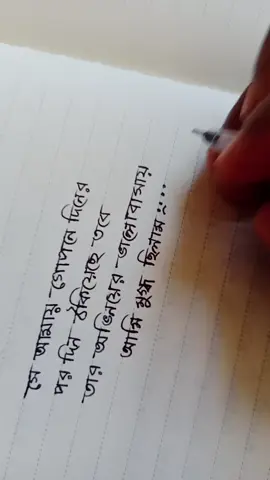 সে আমায় গোপনে দিনের
পর দিন ঠকিয়েছে তবে
তার অভিনয়ের ভালোবাসায়
আমি মুগ্ধ ছিলাম